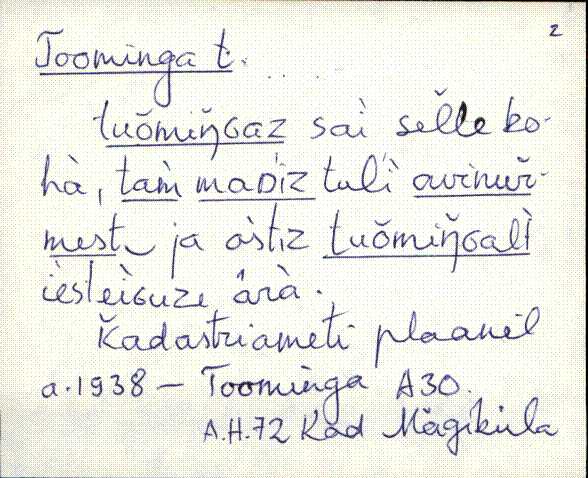 2
Toominga t.
tuŏmiŋ̆ɢaz sai sel̆le ko-
hà, tam̀ maᴅ́iz tul'i avinuŕ-
mest ja ostiz tuŏmiŋ̆ɢal̀t
iesteiɢuze ârà.
Kadastriameti plaanil
a. 1938 – Toominga A30.
A.H.72 Kad Mägiküla